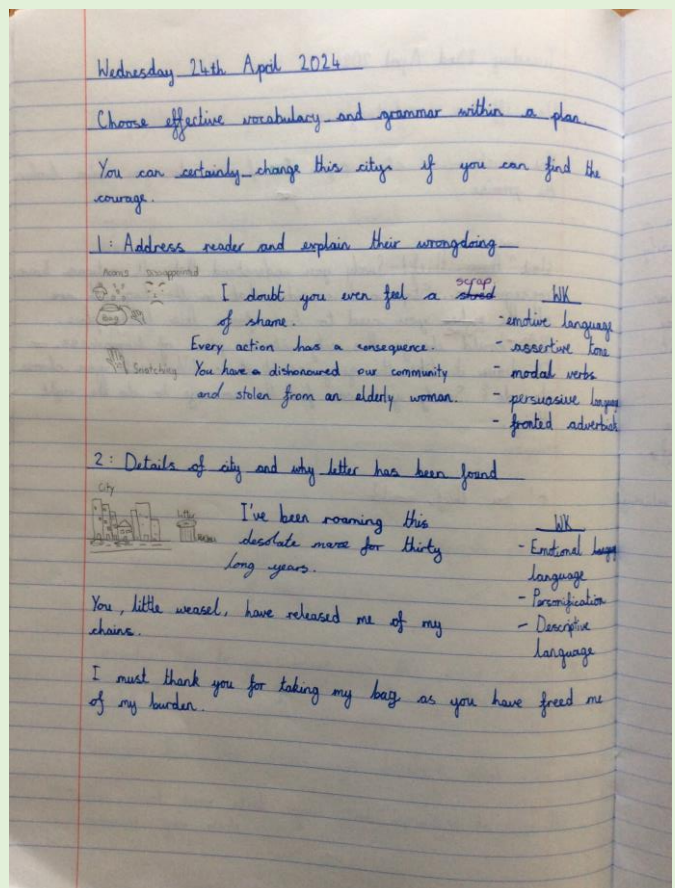 Wednesday 24th April 2024
Choose effective vocabulary and grammar within a plan.
You can certainly change this city, if you can find the
courage.
1: Address reader and explain their wrongdoing
Acorns Disappointed
bag
Snatching
I doubt you even feel a shred scrap
of shame.
Every action has a consequence.
You have a dishonoured our community
and stolen from an elderly woman.
WK
- emotive language
- assertive tone
- modal verbs
- persuasive language
- fronted adverbials
2: Details of city and why letter has been found
City
Letter
I've been roaming this
desolate maze for thirty
long years.
WK
- Emotional
language
- Personification
- Descriptive
language
You, little weasel, have released me of my
chains.
I must thank you for taking my bag as you have freed me
of my burden.